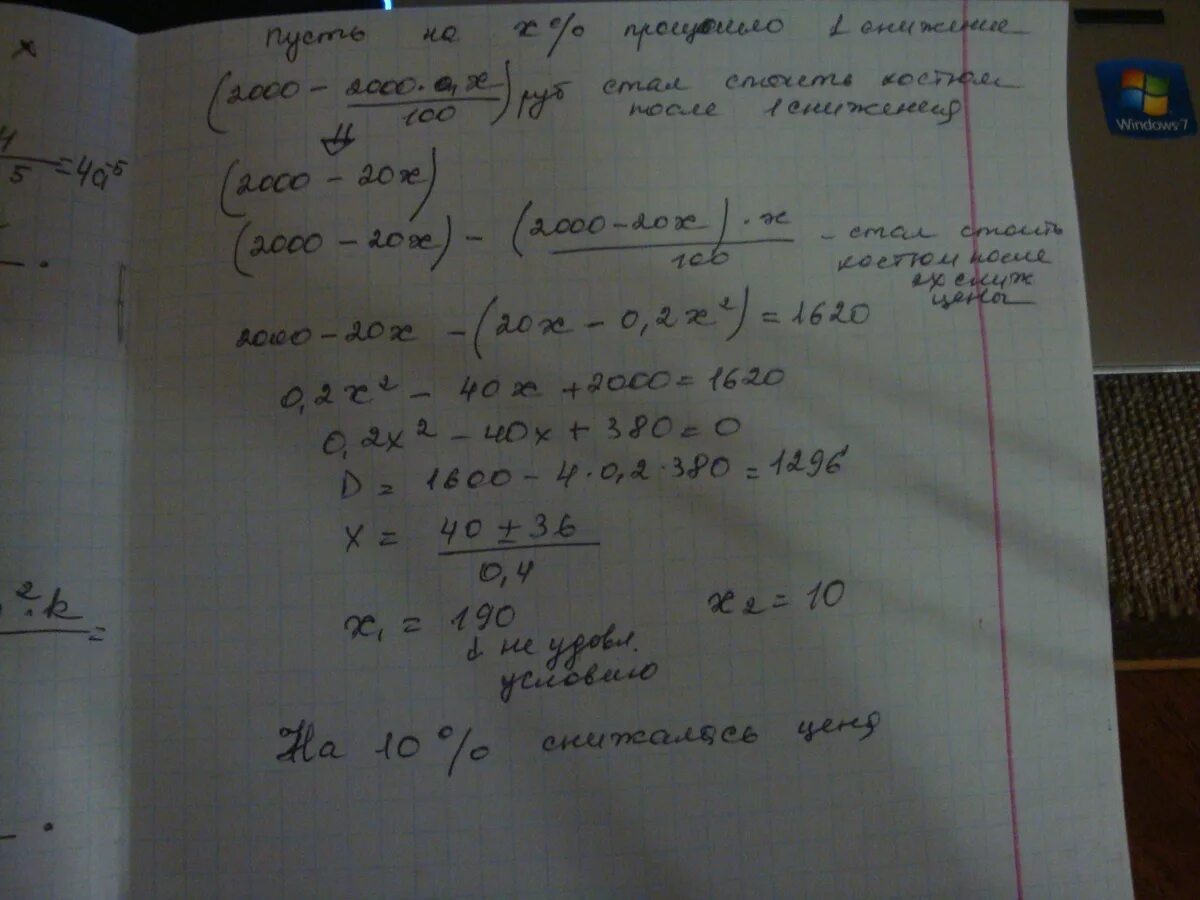 Пусть на x% прошло 1 снижение
(2000 - 2000·0,x/100) руб стал стоить костюм
после 1 снижения
⇓
(2000 - 20x)
(2000 - 20x) - (2000-20x)·x/100 - стал стоить
костюм после
2х сниж
цены
2000 - 20x - (20x - 0,2x²) = 1620
0,2x² - 40x + 2000 = 1620
0,2x² - 40x + 380 = 0
D = 1600 - 4·0,2·380 = 1296
x = 40 ± 36/0,4
x₁ = 190 x₂ = 10
не удовл.
условию
На 10% снижалась цена
x
4/5 = 4a⁻⁵
²·k/ =
Windows 7